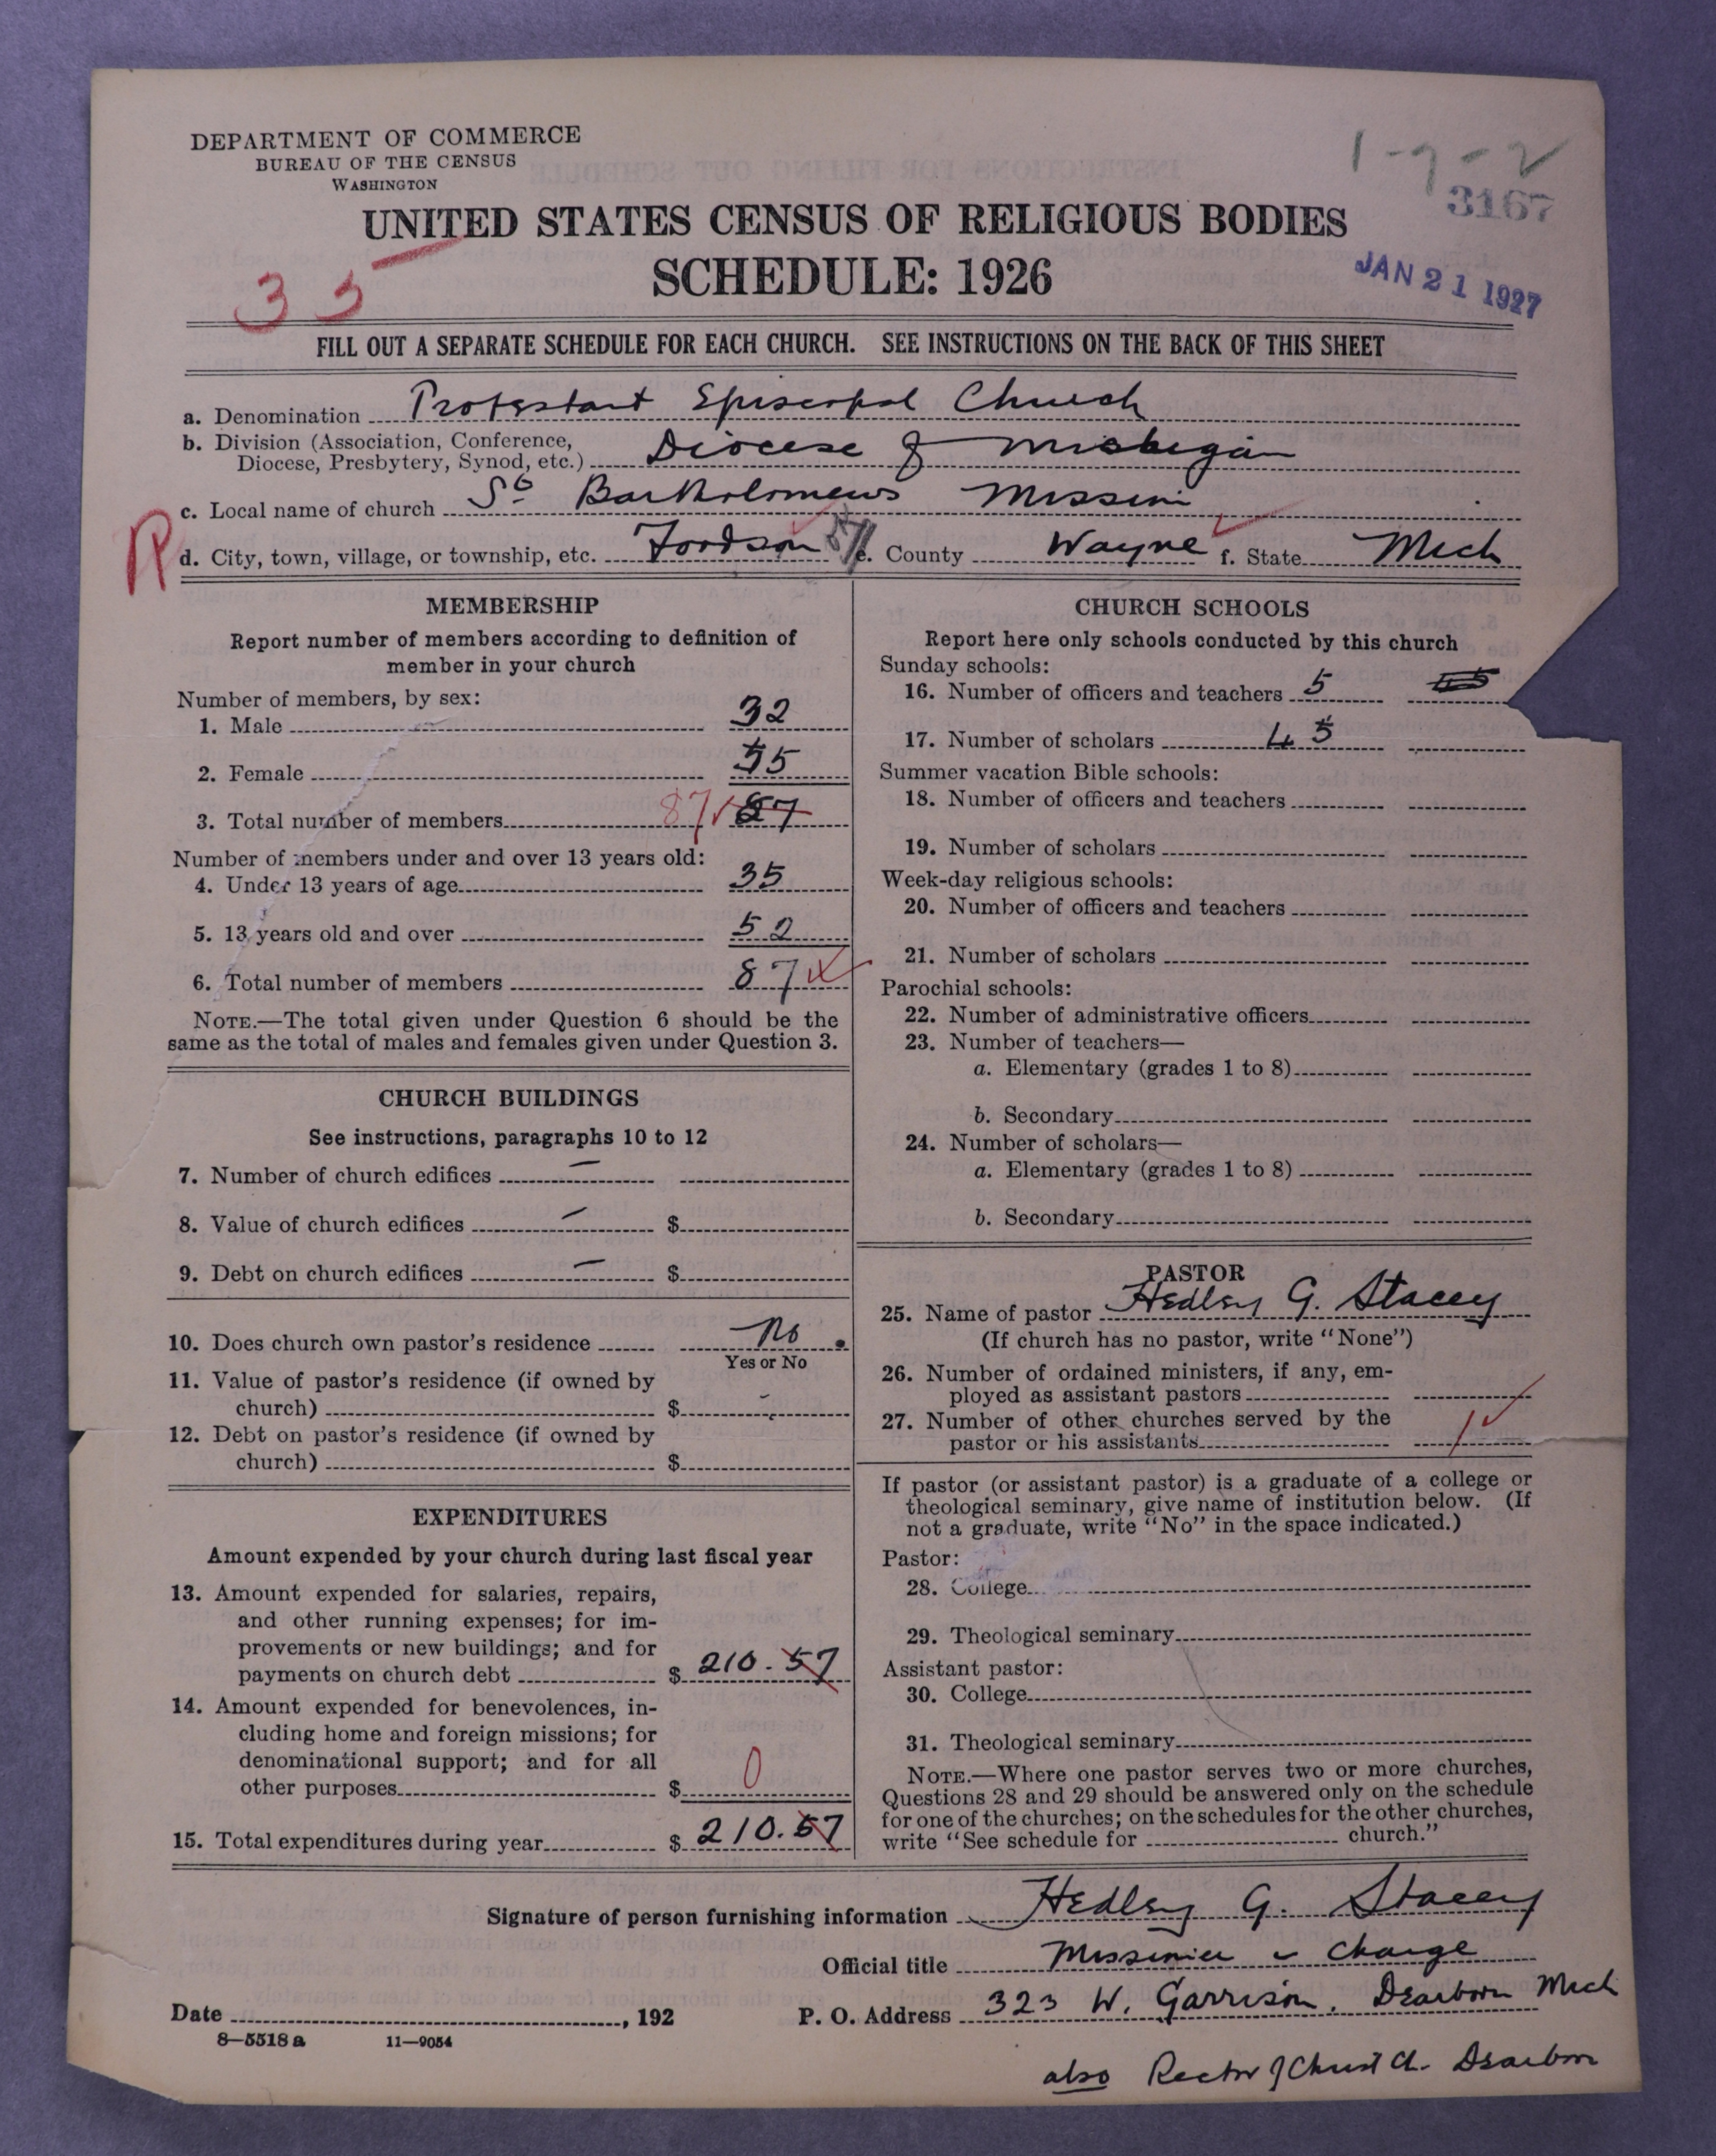 DEPARTMENT OF COMMERCE
BUREAU OF THE CENSUS
WASHINGTON
1-7-2
3167
UNITED STATES CENSUS OF RELIGIOUS BODIES
SCHEDULE: 1926
35
JAN 21 1927
FILL OUT A SEPARATE SCHEDULE FOR EACH CHURCH. SEE INSTRUCTIONS ON THE BACK OF THIS SHEET
a. Denomination Protestant Episcopal Church
b. Division (Association, Conference,
Diocese, Presbytery, Synod, etc.) Diocese of Michigan
c. Local name of church St Bartholomews Mission
R
d. City, town, village, or township, etc. Fordson e. County Wayne f. State Mich
MEMBERSHIP
Report number of members according to definition of
member in your church
Number of members, by sex:
1. Male 32
2. Female 55
3. Total number of members 87 87
Number of members under and over 13 years old:
4. Under 13 years of age 35
5. 13 years old and over 52
6. Total number of members 87
NOTE.—The total given under Question 6 should be the
same as the total of males and females given under Question 3.
CHURCH BUILDINGS
See instructions, paragraphs 10 to 12
7. Number of church edifices —
8. Value of church edifices — $
9. Debt on church edifices — $
10. Does church own pastor's residence No.
Yes or No
11. Value of pastor's residence (if owned by
church) $ -
12. Debt on pastor's residence (if owned by
church) $
EXPENDITURES
Amount expended by your church during last fiscal year
13. Amount expended for salaries, repairs,
and other running expenses; for im-
provements or new buildings; and for
payments on church debt $ 210.57
14. Amount expended for benevolences, in-
cluding home and foreign missions; for
denominational support; and for all
other purposes $ 0
15. Total expenditures during year $ 210.57
CHURCH SCHOOLS
Report here only schools conducted by this church
Sunday schools:
16. Number of officers and teachers 5
17. Number of scholars 45
Summer vacation Bible schools:
18. Number of officers and teachers
19. Number of scholars
Week-day religious schools:
20. Number of officers and teachers
21. Number of scholars
Parochial schools:
22. Number of administrative officers
23. Number of teachers—
a. Elementary (grades 1 to 8)
b. Secondary
24. Number of scholars—
a. Elementary (grades 1 to 8)
b. Secondary
PASTOR
25. Name of pastor Hedley G. Stacey
(If church has no pastor, write "None")
26. Number of ordained ministers, if any, em-
ployed as assistant pastors
27. Number of other churches served by the
pastor or his assistants 1
If pastor (or assistant pastor) is a graduate of a college or
theological seminary, give name of institution below. (If
not a graduate, write "No" in the space indicated.)
Pastor:
28. College
29. Theological seminary
Assistant pastor:
30. College
31. Theological seminary
NOTE.—Where one pastor serves two or more churches,
Questions 28 and 29 should be answered only on the schedule
for one of the churches; on the schedules for the other churches,
write "See schedule for church."
Signature of person furnishing information Hedley G. Stacey
Official title Missioner in Charge
Date , 192 P. O. Address 323 W. Garrison. Dearborn Mich
8—5518 a 11—9054
also Rector of Christ Ch. Dearborn